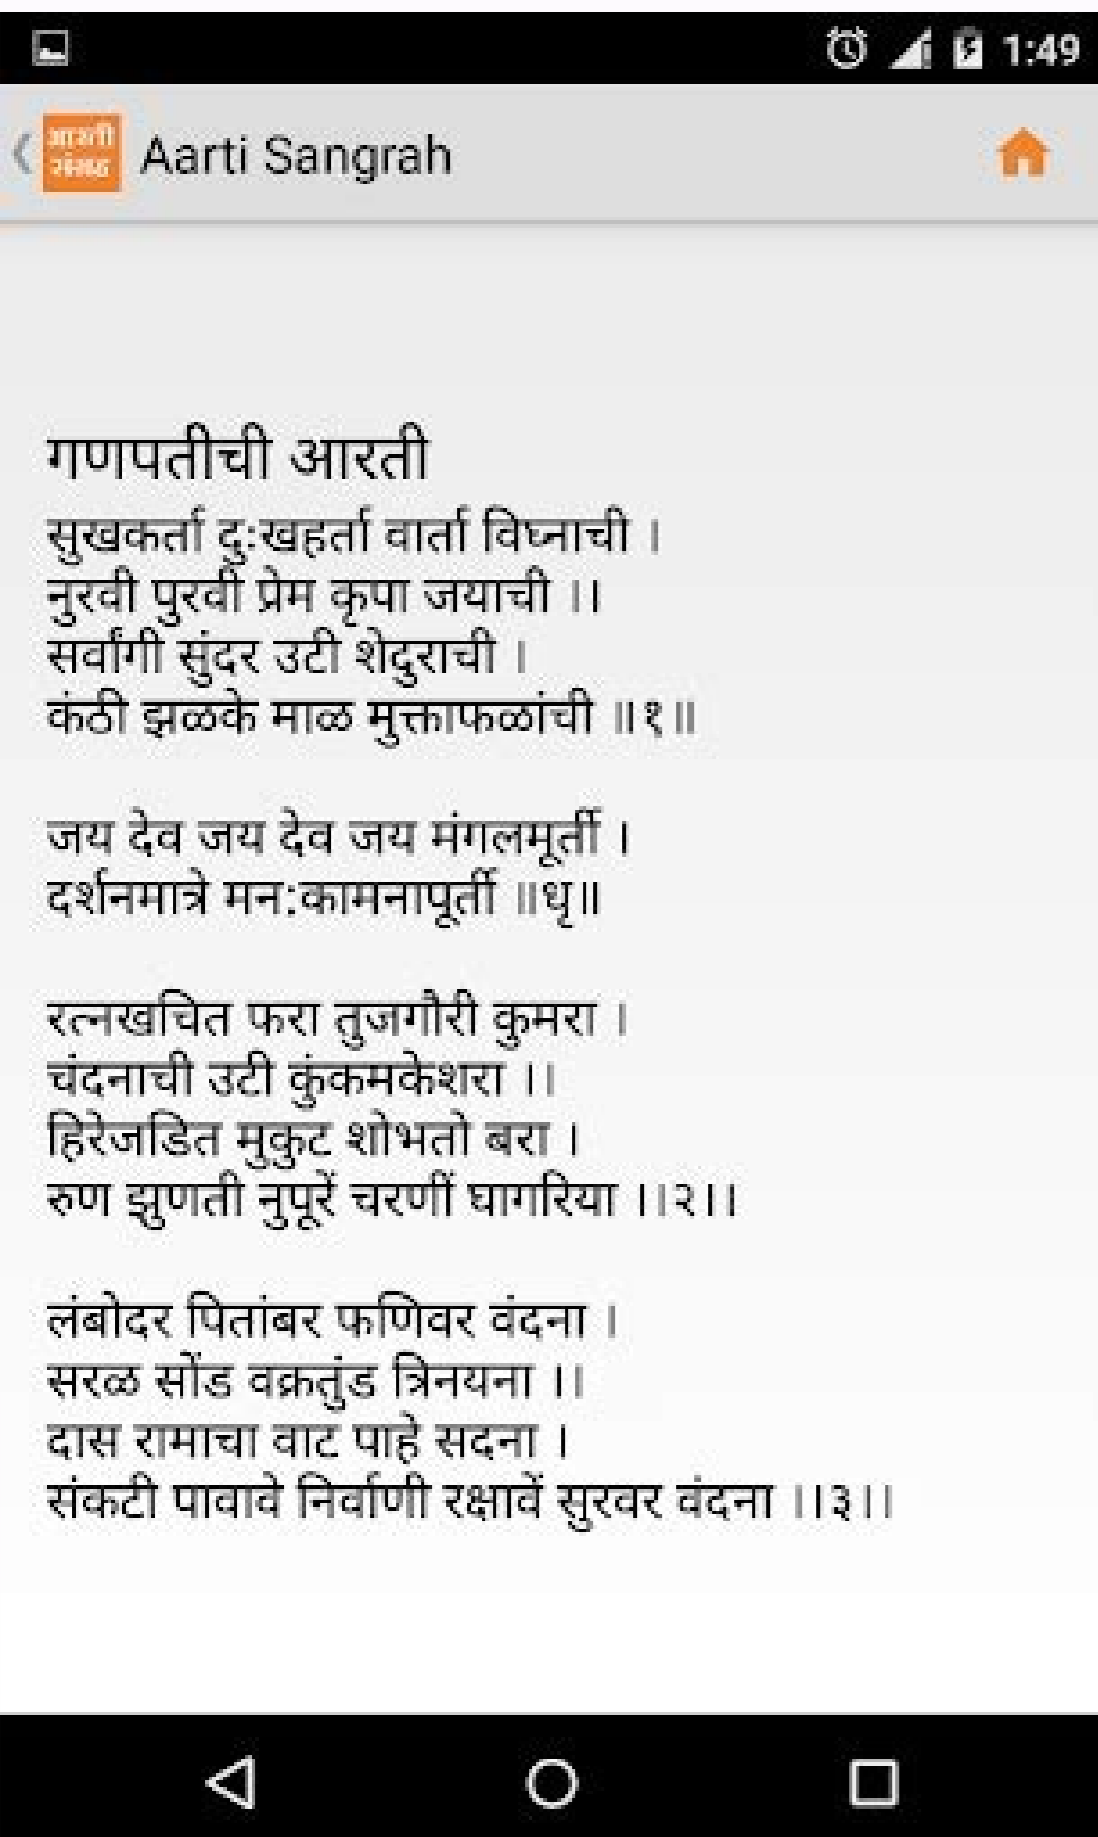 1:49
आरती
संग्रह
Aarti Sangrah
गणपतीची आरती
सुखकर्ता दुःखहर्ता वार्ता विघ्नाची ।
नुरवी पुरवी प्रेम कृपा जयाची ।।
सर्वांगी सुंदर उटी शेदुराची ।
कंठी झळके माळ मुक्ताफळांची ॥१॥
जय देव जय देव जय मंगलमूर्ती ।
दर्शनमात्रे मन:कामनापूर्ती ॥धृ॥
रत्नखचित फरा तुजगौरी कुमरा ।
चंदनाची उटी कुंकमकेशरा ।।
हिरेजडित मुकुट शोभतो बरा ।
रुण झुणती नुपूरें चरणीं घागरिया ।।२।।
लंबोदर पितांबर फणिवर वंदना ।
सरळ सोंड वक्रतुंड त्रिनयना ।।
दास रामाचा वाट पाहे सदना ।
संकटी पावावे निर्वाणी रक्षावें सुरवर वंदना ।।३।।